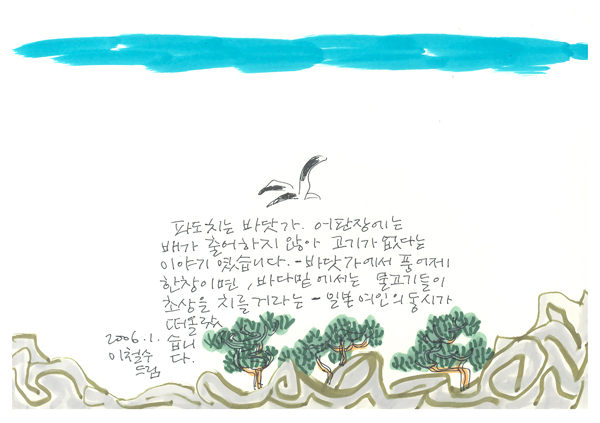 파도치는 바닷가. 어판장에는
배가 출어하지 않아 고기가 없다는
이야기 였습니다. - 바닷가에서 풍어제
한창이면, 바다밑에서는 물고기들이
초상을 치를거라는 - 일본여인의 동시가
떠올랐
습니
다.
2006.1.
이철수
드림